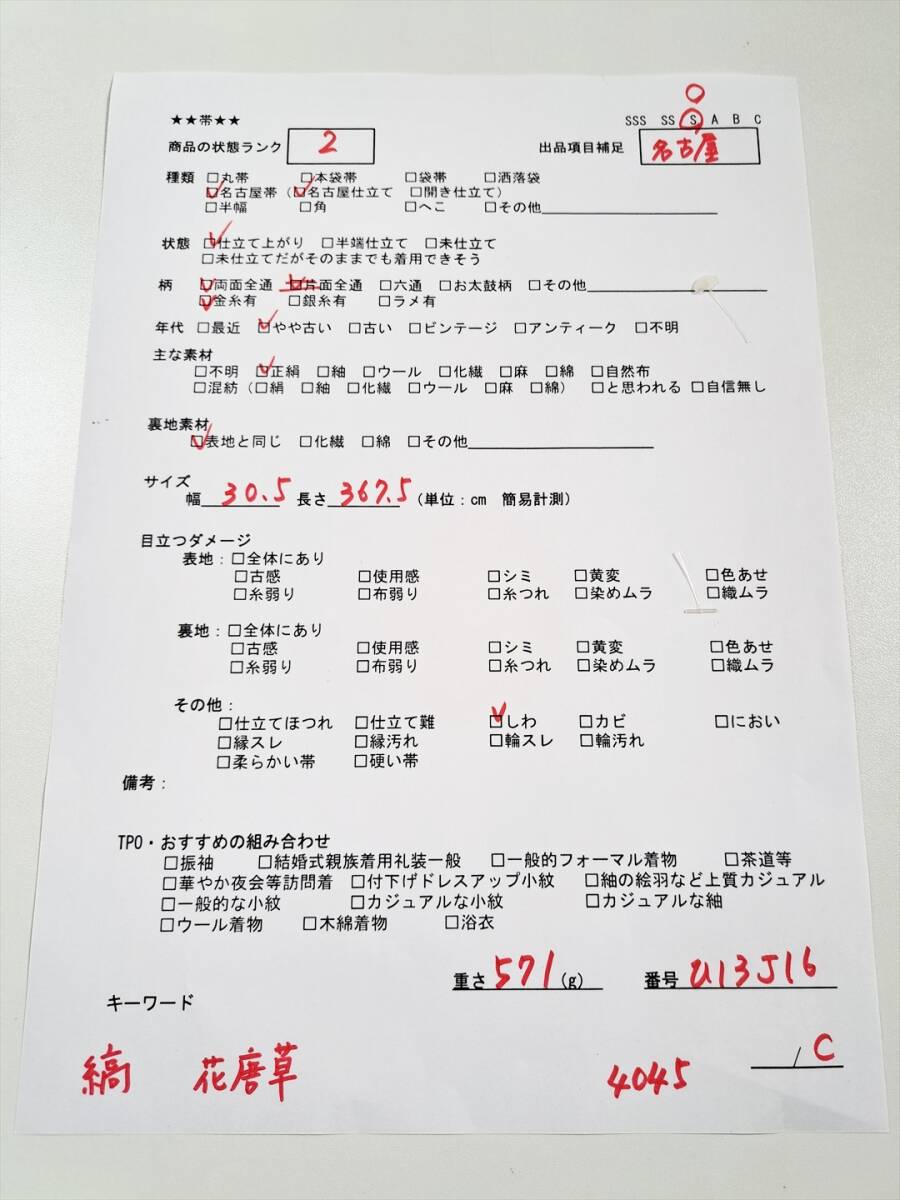 ★★帯★★ SSS SS S A B C
商品の状態ランク 2 出品項目補足 名古屋
種類 □丸帯 □本袋帯 □袋帯 □洒落袋
□名古屋帯（□名古屋仕立て □開き仕立て）
□半幅 □角 □へこ □その他
状態 □仕立て上がり □半端仕立て □未仕立て
□未仕立てだがそのままでも着用できそう
柄 □両面全通 □片面全通 □六通 □お太鼓柄 □その他
□金糸有 □銀糸有 □ラメ有
年代 □最近 □やや古い □古い □ビンテージ □アンティーク □不明
主な素材
□不明 □正絹 □紬 □ウール □化繊 □麻 □綿 □自然布
□混紡（□絹 □紬 □化繊 □ウール □麻 □綿） □と思われる □自信無し
裏地素材
□表地と同じ □化繊 □綿 □その他
サイズ
幅 30.5 長さ 367.5（単位：cm 簡易計測）
目立つダメージ
表地：□全体にあり
□古感 □使用感 □シミ □黄変 □色あせ
□糸弱り □布弱り □糸つれ □染めムラ □織ムラ
裏地：□全体にあり
□古感 □使用感 □シミ □黄変 □色あせ
□糸弱り □布弱り □糸つれ □染めムラ □織ムラ
その他：
□仕立てほつれ □仕立て難 □しわ □カビ □におい
□縁スレ □縁汚れ □輪スレ □輪汚れ
□柔らかい帯 □硬い帯
備考：
TPO・おすすめの組み合わせ
□振袖 □結婚式親族着用礼装一般 □一般的フォーマル着物 □茶道等
□華やか夜会等訪問着 □付下げドレスアップ小紋 □紬の絵羽など上質カジュアル
□一般的な小紋 □カジュアルな小紋 □カジュアルな紬
□ウール着物 □木綿着物 □浴衣
重さ 571 (g) 番号 U13J16
キーワード
/ C
縞 花唐草 4045